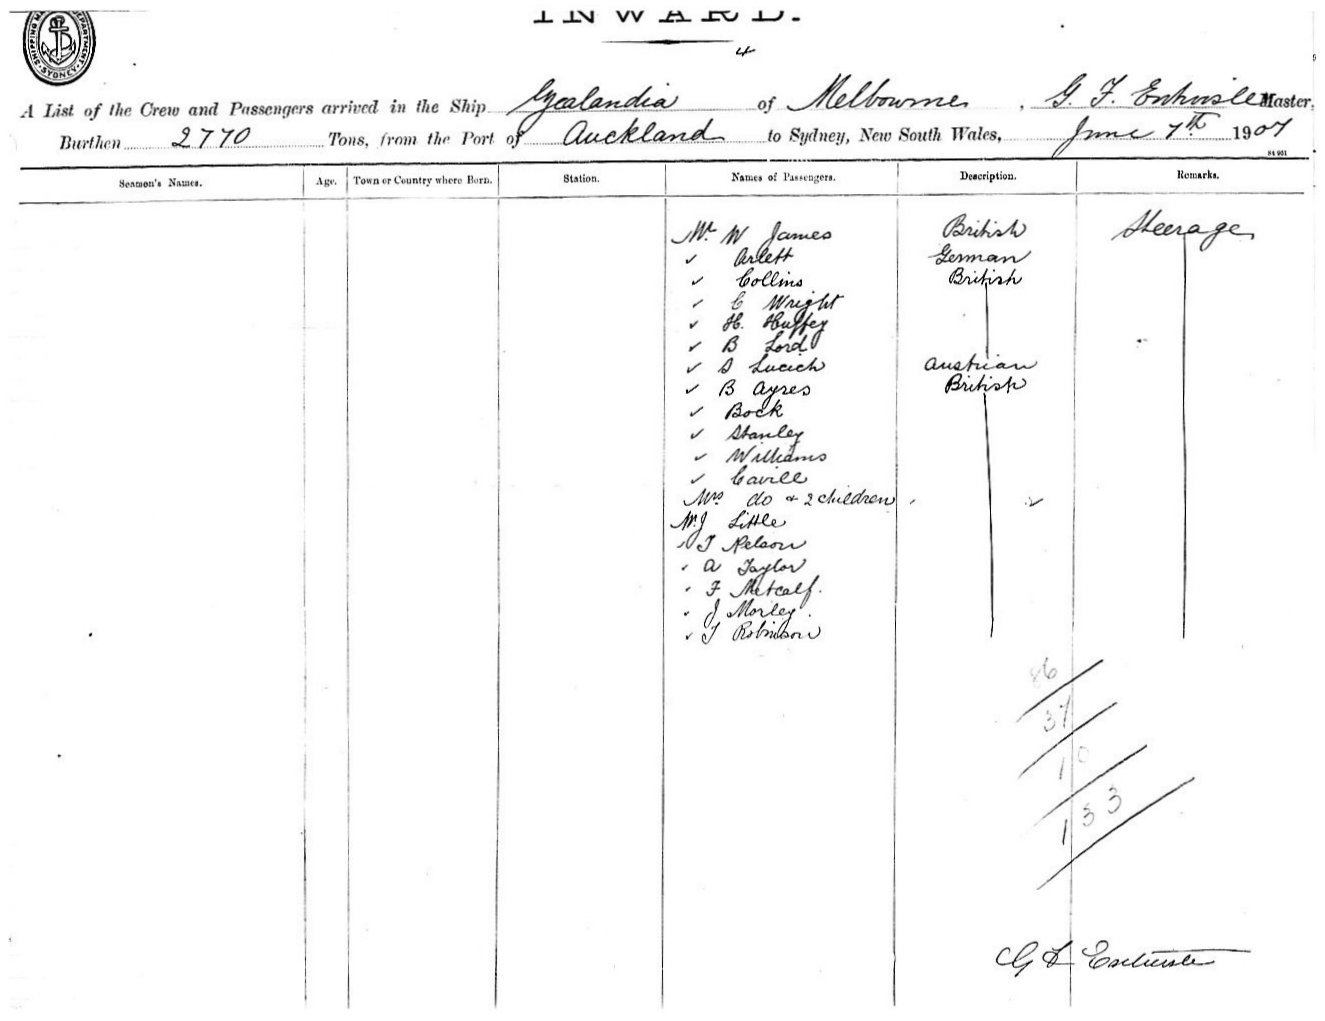 INWARD.
4
SHIPPING MA DEPARTMENT SYDNEY
A List of the Crew and Passengers arrived in the Ship Zealandia of Melbourne, G. F. Entwisle Master,
Burthen 2770 Tons, from the Port of Auckland to Sydney, New South Wales, June 7th 1907
Seamen's Names. Age. Town or Country where Born. Station. Names of Passengers. Description. Remarks.
Mr W James British Steerage
✓ Arlett German
✓ Collins British
✓ C Wright
✓ H. Huffey
✓ B Lord
✓ S Lucich Austrian
✓ B Ayres British
✓ Bock
✓ Stanley
✓ Williams
✓ Cavill
Mrs do + 2 children
Mr J Little
✓ T Nelson
✓ A Taylor
✓ F Metcalf.
✓ J Morley.
✓ T Robinson
86
37
10
133
G F Entwisle